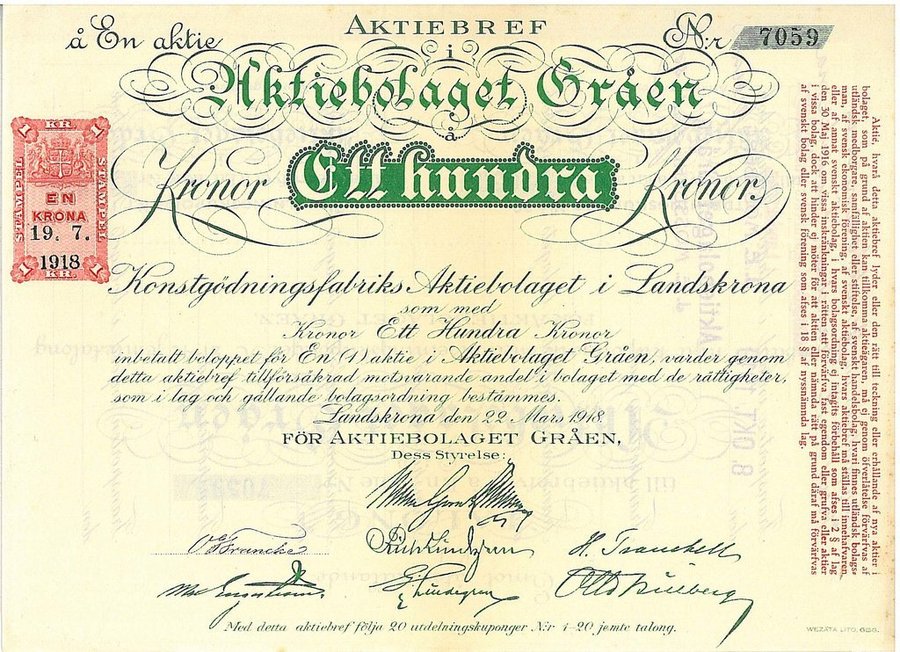 AKTIEBREF
å En aktie
i
N:r 7059
Aktiebolaget Gråen
å
Kronor Ett hundra Kronor.
1 KR. 1
STAMPEL STAMPEL
EN
KRONA
19. 7.
1918
1 KR. 1
Konstgödningsfabriks Aktiebolaget i Landskrona
som med
Kronor Ett Hundra Kronor
inbetalt beloppet för En (1) aktie i Aktiebolaget Gråen, varder genom
detta aktiebref tillförsäkrad motsvarande andel i bolaget med de rättigheter,
som i lag och gällande bolagsordning bestämmes.
Landskrona den 22 Mars 1918.
FÖR AKTIEBOLAGET GRÅEN,
Dess Styrelse:
Med detta aktiebref följa 20 utdelningskuponger N:r 1-20 jemte talong.
Aktie, hvarå detta aktiebref lyder eller den rätt till teckning eller erhållande af nya aktier i
bolaget, som på grund af aktien kan tillkomma aktieägaren, må ej genom öfverlåtelse förvärfvas af
utländsk medborgare, samfällighet eller stiftelse, af svenskt handelsbolag, hvari finnes utländsk bolags-
man, af svensk ekonomisk förening, af svenskt aktiebolag, hvars aktiebref må ställas till innehafvaren,
eller af annat svenskt aktiebolag, i hvars bolagsordning ej intagits förbehåll som afses i 2 § af lag
den 30 Maj 1916 om vissa inskränkningar i rätten att förvärfva fast egendom eller grufva eller aktier
i vissa bolag, dock att hinder ej möter för att aktien eller nämnda rätt på grund däraf må förvärfvas
af svenskt bolag eller svensk förening som afses i 18 § af nyssnämnda lag.
WEZÄTA LITO. GBG.